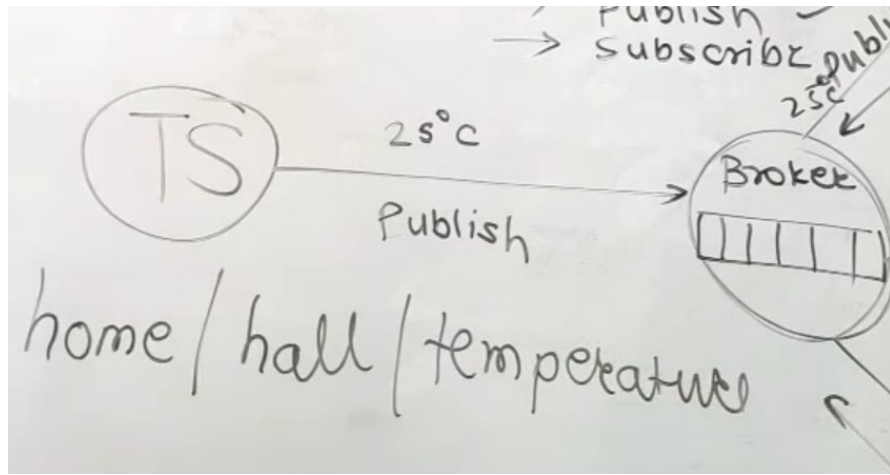 Publish
→ Subscribe
25°C
Publi
TS
25°C
Publish
Broker
home/hall/temperature